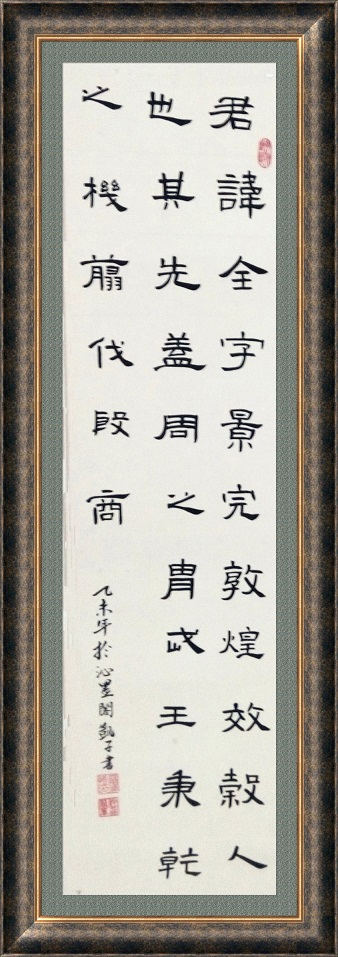 君諱全字景完敦煌效穀人
也其先蓋周之胄武王秉乾
之機翦伐殷商
乙未年於沁墨閣勤子書